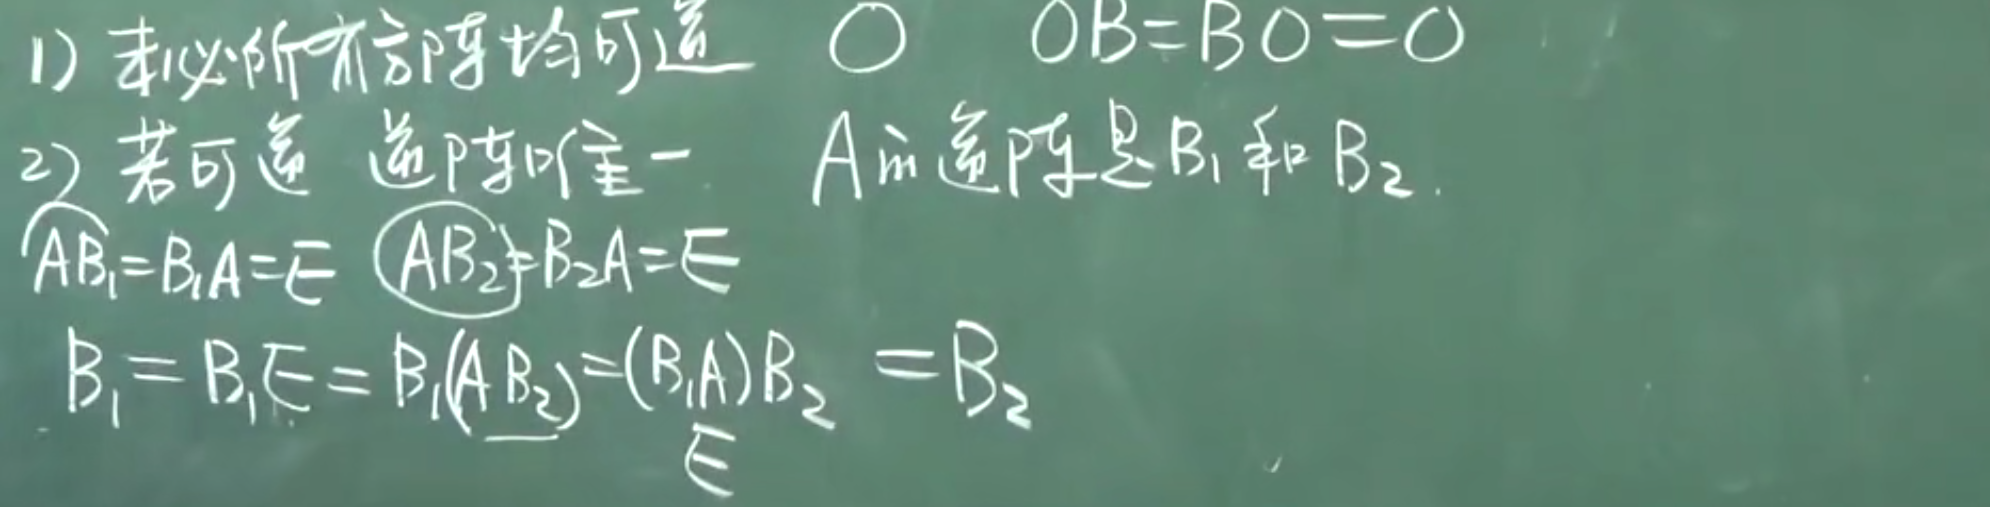 1) 未必所有方阵均可逆 O OB=BO=O
2) 若可逆 逆阵唯一. A的逆阵是B₁和B₂.
AB₁=B₁A=E AB₂=B₂A=E
B₁=B₁E=B₁(AB₂)=(B₁A)B₂=B₂
E